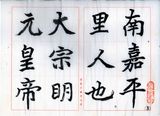 南嘉平
里人也
大宗明
元皇帝